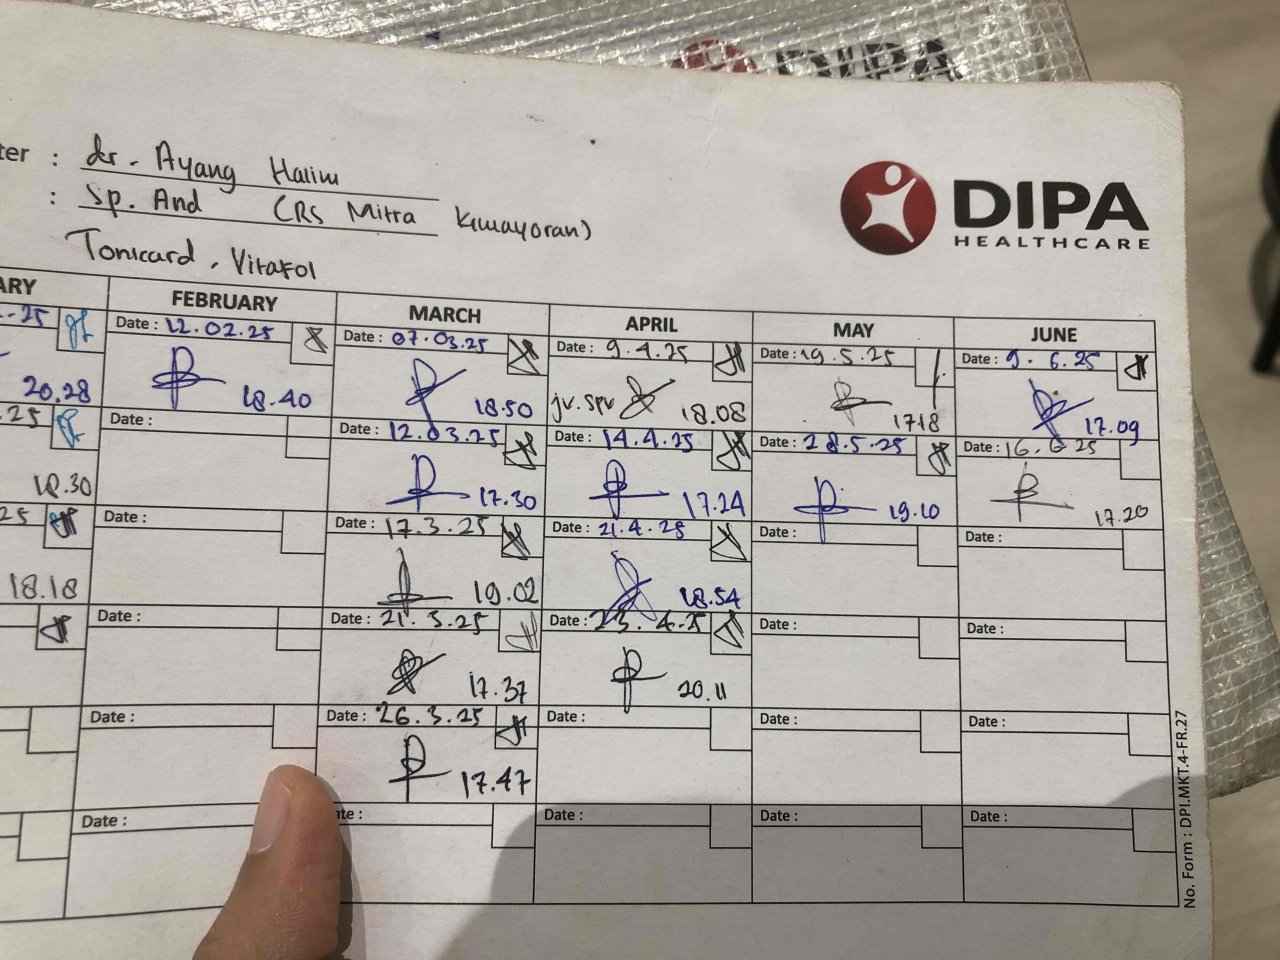 DIPA
ter : dr. Ayang Halim
: Sp. And (RS Mitra Kemayoran)
Tonicard, Vitafol
DIPA
HEALTHCARE
ARY FEBRUARY MARCH APRIL MAY JUNE
-25 Date : 12.02.25 Date : 07.03.25 Date : 9.4.25 Date : 19.5.25 Date : 9.6.25
20.28 18.40 18.50 jv. spv 18.08 17.18 17.09
.25 Date : Date : 12.03.25 Date : 14.4.25 Date : 28.5.25 Date : 16.6.25
18.30 17.30 17.24 19.10 17.20
25 Date : Date : 17.3.25 Date : 21.4.25 Date : Date :
18.18 19.02 18.54
Date : Date : 21.3.25 Date : 23.4.25 Date : Date :
17.37 20.11
Date : Date : 26.3.25 Date : Date : Date :
17.47
Date : ate : Date : Date : Date :
No. Form : DPI.MKT.4-FR.27